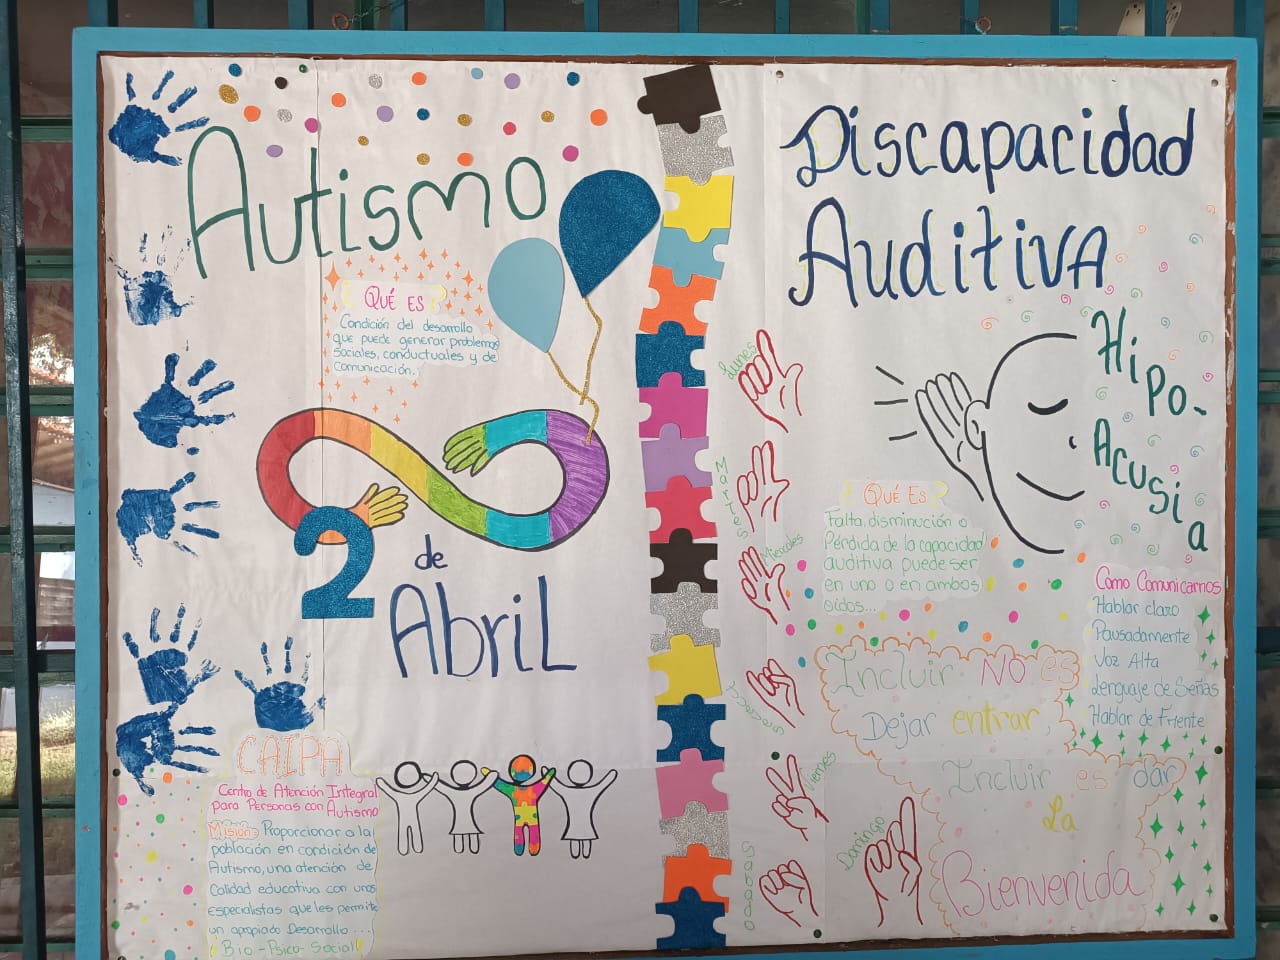 Autismo
¿QUÉ ES?
Condición del desarrollo
que puede generar problemas
Sociales, conductuales y de
comunicación.
2
de
Abril
CAIPA
Centro de Atención Integral
para Personas con Autismo
Misión: Proporcionar a la
población en condición de
Autismo, una atención de
Calidad educativa con unos
especialistas que les permite
un apropiado Desarrollo...
"Bio-Psico-Social"
Discapacidad
Auditiva
Hipo-
Acusia
Lunes
Martes
Miercoles
Jueves
Viernes
Sabado
Domingo
¿QUÉ ES?
Falta, disminución o
Pérdida de la capacidad
auditiva puede ser
en uno o en ambos
oidos...
Como Comunicarnos
Hablar claro
Pausadamente
Voz Alta
Lenguaje de Señas
Hablar de Frente
Incluir NO es
Dejar entrar,
Incluir es dar
La
Bienvenida